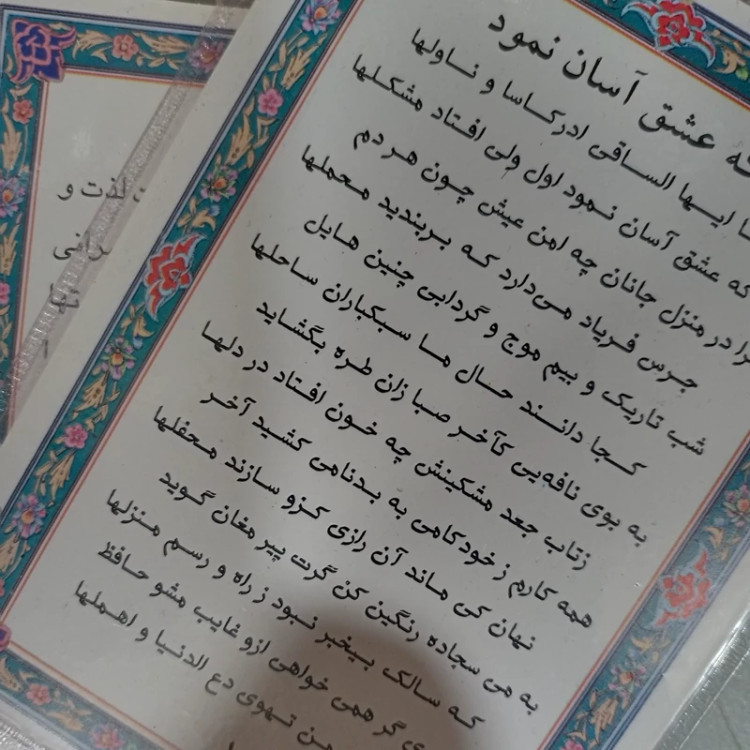 که عشق آسان نمود
ایها الساقی ادرکاسا و ناولها
که عشق آسان نمود اول ولی افتاد مشکلها
در منزل جانان چه امن عیش چون هر دم
جرس فریاد می‌دارد که بربندید محملها
شب تاریک و بیم موج و گردابی چنین هایل
کجا دانند حال ما سبکباران ساحلها
به بوی نافه‌یی کآخر صبا زان طره بگشاید
زتاب جعد مشکینش چه خون افتاد در دلها
همه کارم ز خودکامی به بدنامی کشید آخر
نهان کی ماند آن رازی کزو سازند محفلها
به می سجاده رنگین کن گرت پیر مغان گوید
که سالک بیخبر نبود ز راه و رسم منزلها
گر همی خواهی ازو غایب مشو حافظ
تهوی دع الدنیا و اهملها